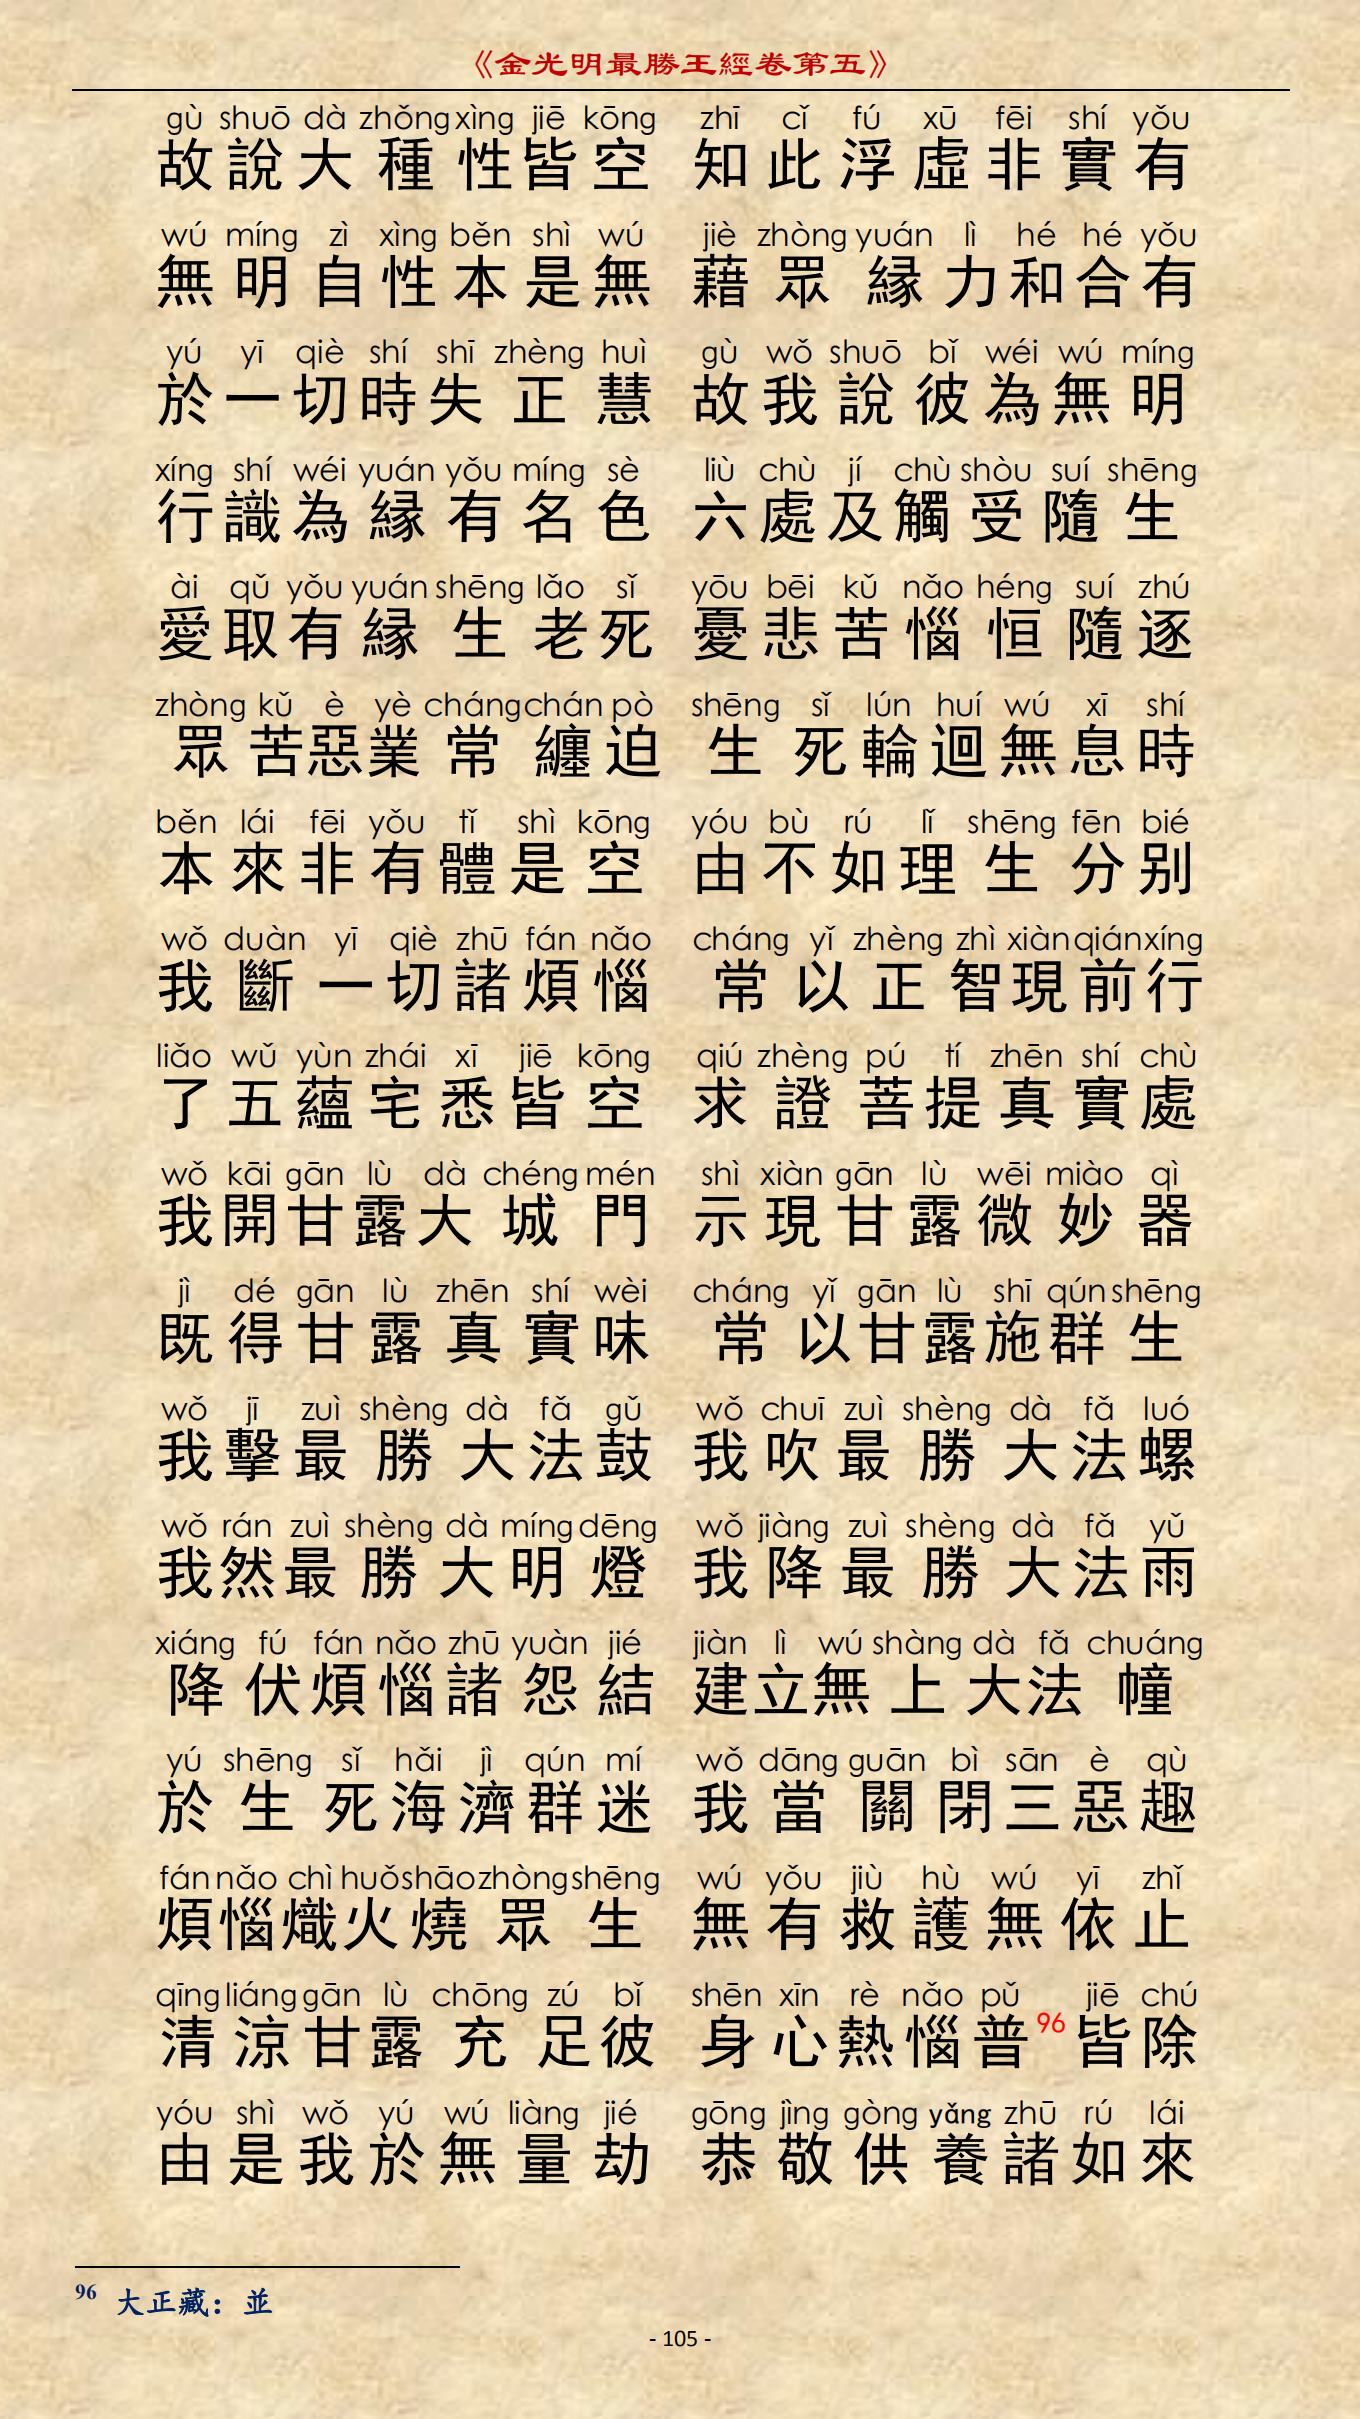 《金光明最勝王經卷第五》
gù shuō dà zhǒng xìng jiē kōng zhī cǐ fú xū fēi shí yǒu
故說大種性皆空 知此浮虛非實有
wú míng zì xìng běn shì wú jiè zhòng yuán lì hé hé yǒu
無明自性本是無 藉眾緣力和合有
yú yī qiè shí shī zhèng huì gù wǒ shuō bǐ wéi wú míng
於一切時失正慧 故我說彼為無明
xíng shí wéi yuán yǒu míng sè liù chù jí chù shòu suí shēng
行識為緣有名色 六處及觸受隨生
ài qǔ yǒu yuán shēng lǎo sǐ yōu bēi kǔ nǎo héng suí zhú
愛取有緣生老死 憂悲苦惱恒隨逐
zhòng kǔ è yè cháng chán pò shēng sǐ lún huí wú xī shí
眾苦惡業常纏迫 生死輪迴無息時
běn lái fēi yǒu tǐ shì kōng yóu bù rú lǐ shēng fēn bié
本來非有體是空 由不如理生分別
wǒ duàn yī qiè zhū fán nǎo cháng yǐ zhèng zhì xiàn qián xíng
我斷一切諸煩惱 常以正智現前行
liǎo wǔ yùn zhái xī jiē kōng qiú zhèng pú tí zhēn shí chù
了五蘊宅悉皆空 求證菩提真實處
wǒ kāi gān lù dà chéng mén shì xiàn gān lù wēi miào qì
我開甘露大城門 示現甘露微妙器
jì dé gān lù zhēn shí wèi cháng yǐ gān lù shī qún shēng
既得甘露真實味 常以甘露施群生
wǒ jī zuì shèng dà fǎ gǔ wǒ chuī zuì shèng dà fǎ luó
我擊最勝大法鼓 我吹最勝大法螺
wǒ rán zuì shèng dà míng dēng wǒ jiàng zuì shèng dà fǎ yǔ
我然最勝大明燈 我降最勝大法雨
xiáng fú fán nǎo zhū yuàn jié jiàn lì wú shàng dà fǎ chuáng
降伏煩惱諸怨結 建立無上大法幢
yú shēng sǐ hǎi jì qún mí wǒ dāng guān bì sān è qù
於生死海濟群迷 我當關閉三惡趣
fán nǎo chì huǒ shāo zhòng shēng wú yǒu jiù hù wú yī zhǐ
煩惱熾火燒眾生 無有救護無依止
qīng liáng gān lù chōng zú bǐ shēn xīn rè nǎo pǔ jiē chú
清涼甘露充足彼 身心熱惱普96皆除
yóu shì wǒ yú wú liàng jié gōng jìng gòng yǎng zhū rú lái
由是我於無量劫 恭敬供養諸如來
96 大正藏：並
- 105 -